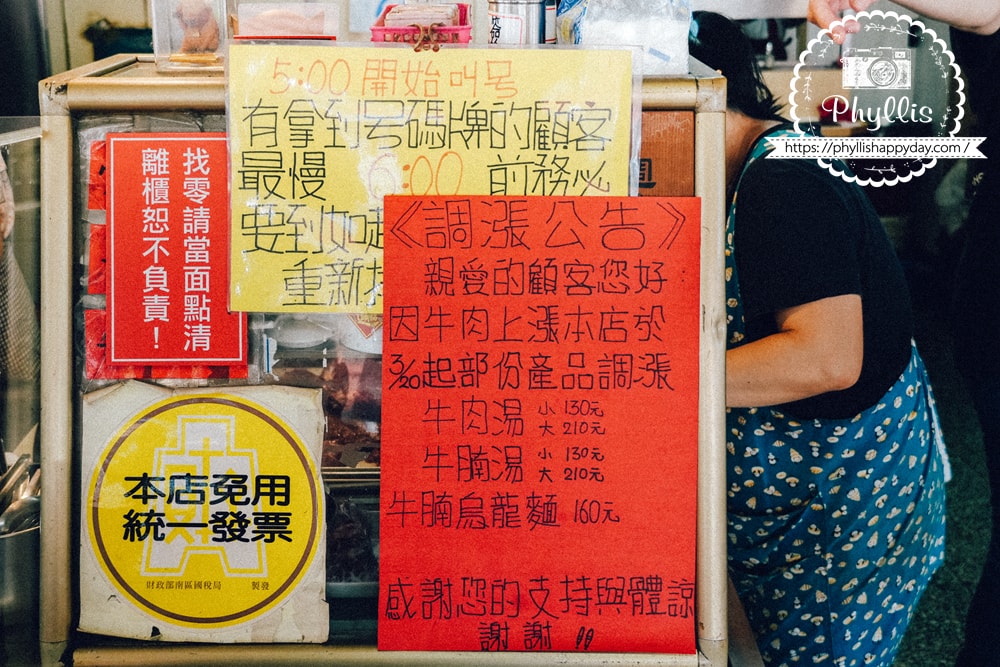 5:00 開始叫号
有拿到号碼牌的顧客
最慢 6:00 前務必
要到如
重新
找零請當面點清
離櫃恕不負責！
《調漲公告》
親愛的顧客您好
因牛肉上漲本店於
3/20起部份產品調漲
牛肉湯 小 130元
大 210元
牛腩湯 小 130元
大 210元
牛腩烏龍麵 160元
感謝您的支持與體諒
謝謝!!
本店免用
統一發票
財政部南區國稅局 製發
Phyllis
https://phyllishappyday.com/